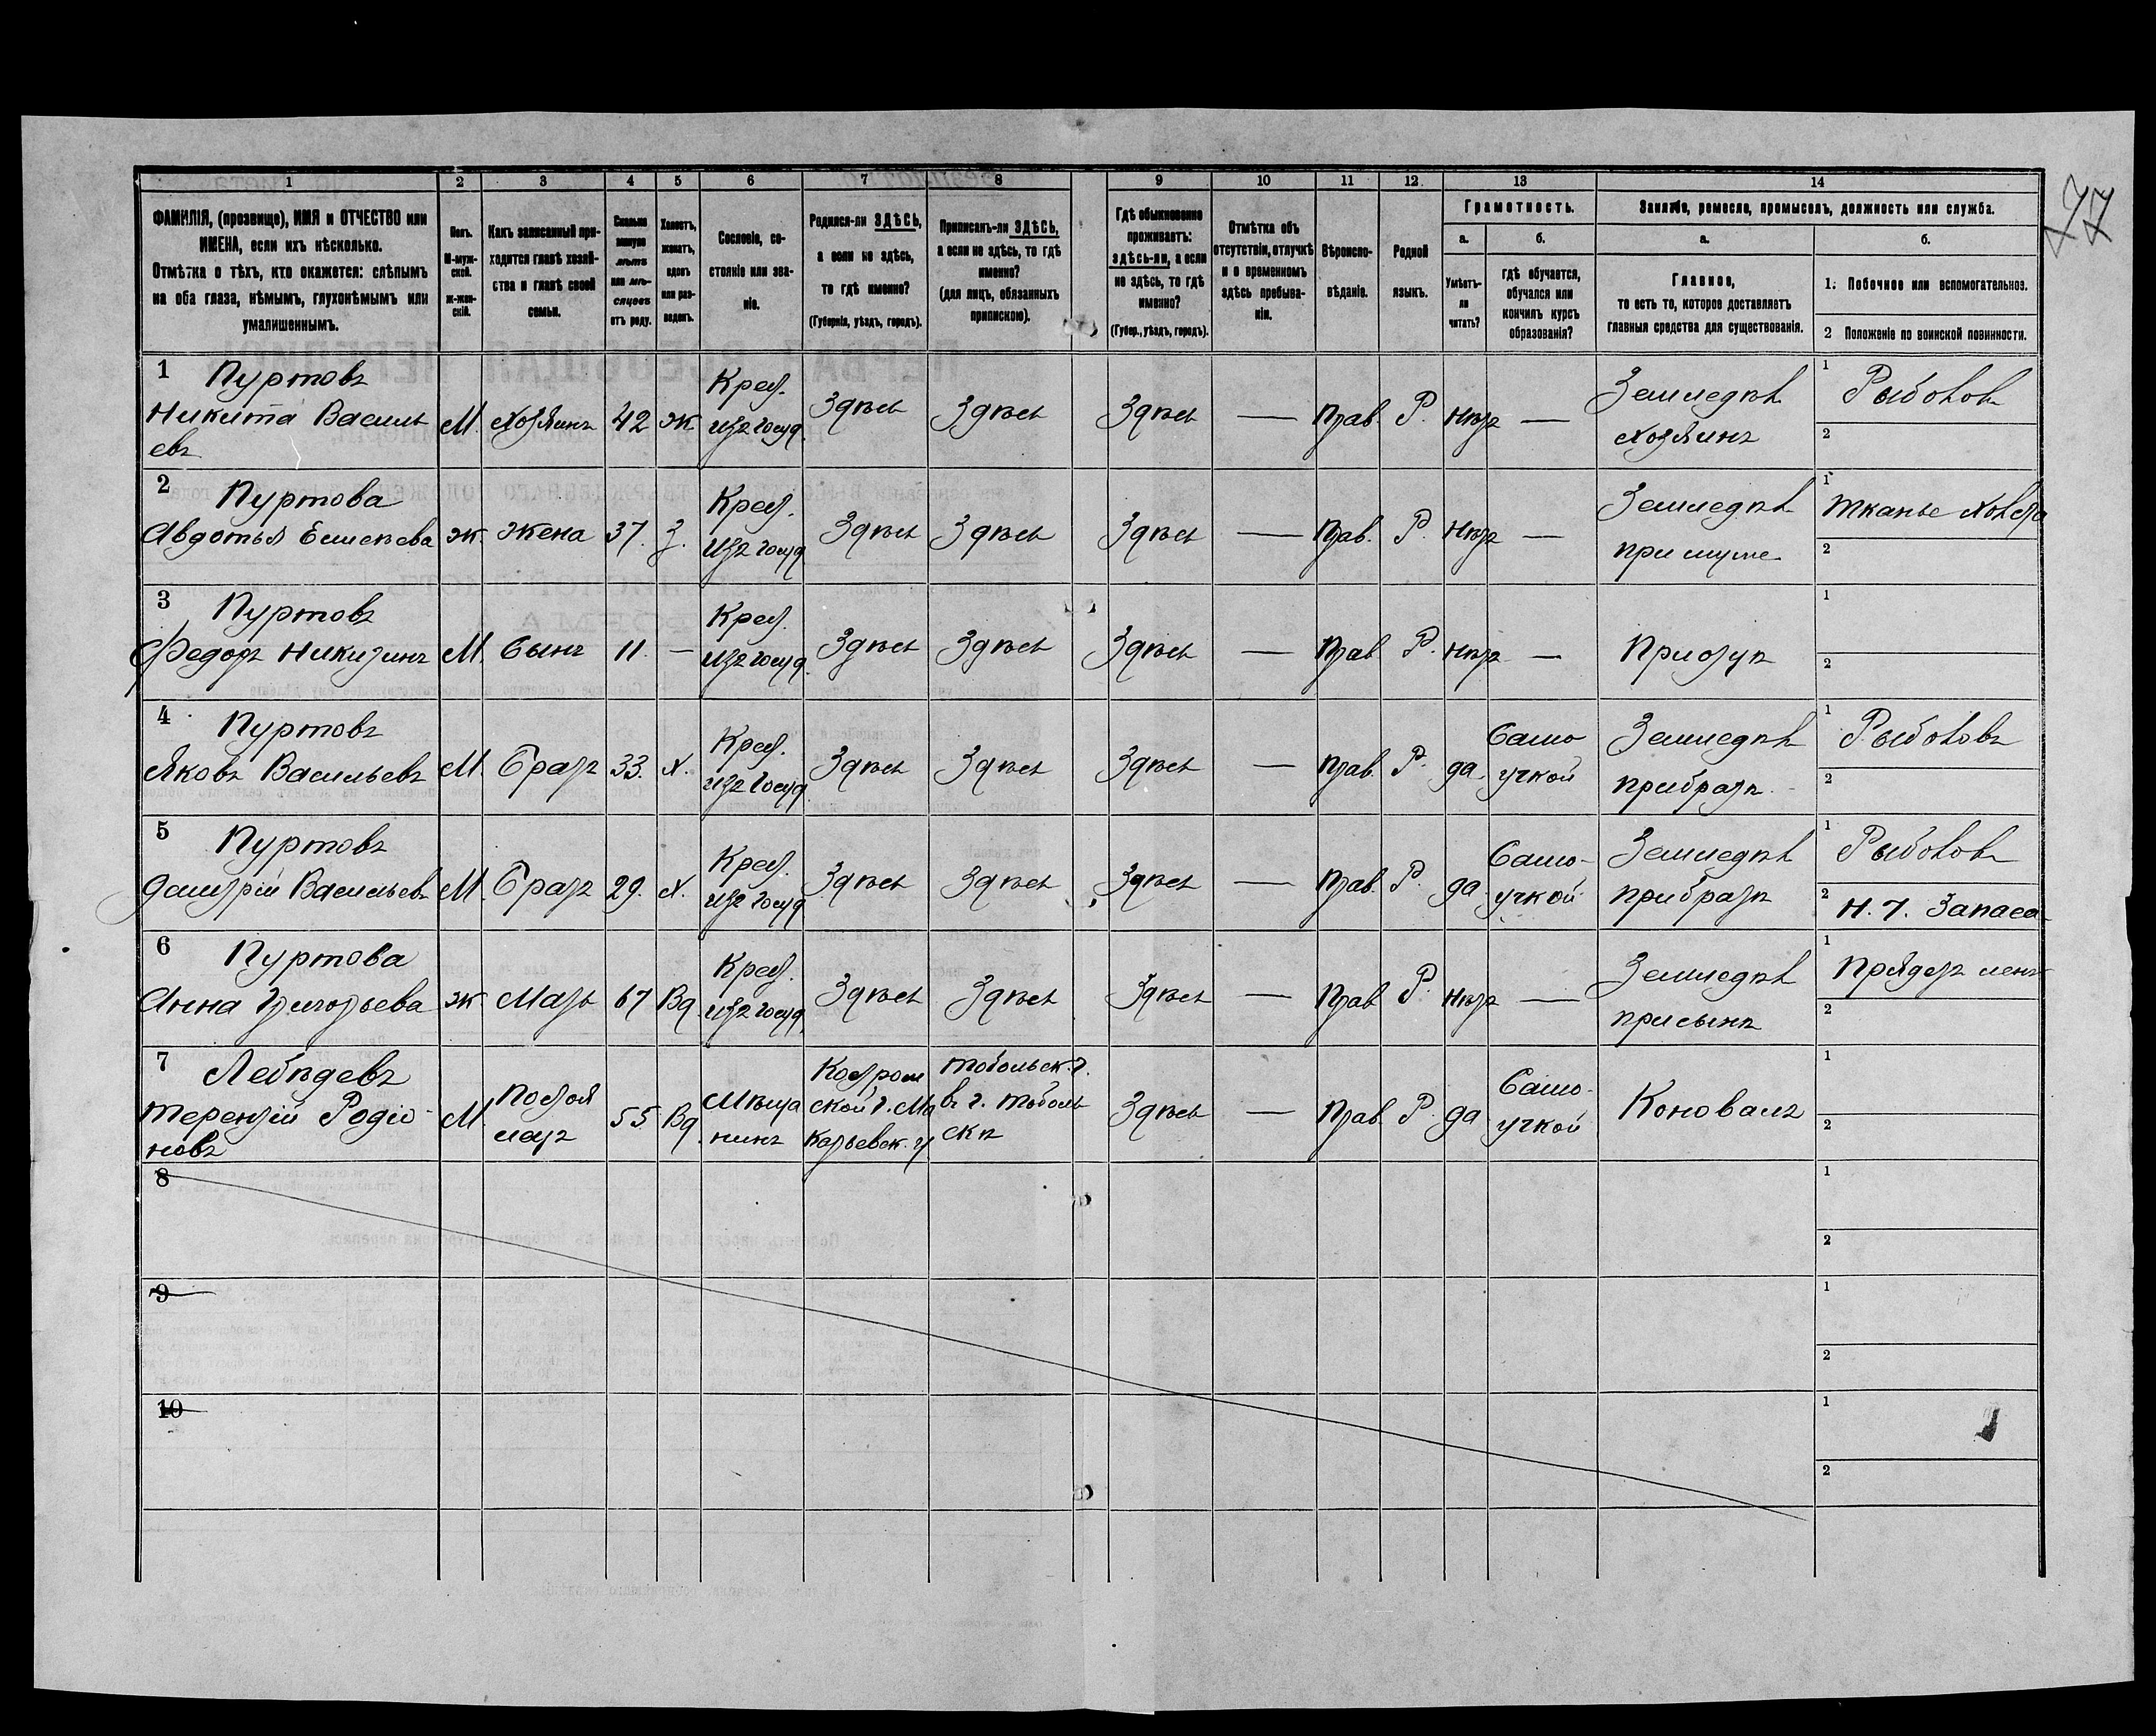 77
1 2 3 4 5 6 7 8 9 10 11 12 13 14
ФАМИЛІЯ, (прозвище), ИМЯ и ОТЧЕСТВО или ИМЕНА, если ихъ нѣсколько.
Отмѣтка о тѣхъ, кто окажется: слѣпымъ на оба глаза, нѣмымъ, глухонѣмымъ или умалишеннымъ.
Полъ. М-муж-ской. ж-жен-скій.
Какъ записанный при-ходится главѣ хозяй-ства и главѣ своей семьи.
Сколько минуло лѣтъ или мѣ-сяцевъ отъ роду.
Холостъ, женатъ, вдовъ или раз-веденъ.
Сословіе, со-стояніе или зва-ніе.
Родился-ли ЗДѢСЬ, а если не здѣсь, то гдѣ именно? (Губернія, уѣздъ, городъ).
Приписанъ-ли ЗДѢСЬ, а если не здѣсь, то гдѣ именно? (для лицъ, обязанныхъ припискою).
Гдѣ обыкновенно проживаетъ: здѣсь-ли, а если не здѣсь, то гдѣ именно? (Губер., уѣздъ, городъ).
Отмѣтка объ отсутствіи, отлучкѣ и о временномъ здѣсь пребыва-ніи.
Вѣроиспо-вѣданіе.
Родной языкъ.
Грамотность.
а. Умѣетъ-ли читать?
б. гдѣ обучается, обучался или кончилъ курсъ образованія?
Занятіе, ремесло, промыселъ, должность или служба.
а. Главное, то есть то, которое доставляетъ главныя средства для существованія.
б. 1. Побочное или вспомогательное.
2 Положеніе по воинской повинности.
1 Пуртовъ Никита Василь евъ М. Хозяинъ 42 ж Крест. изъ госуд. Здѣсь Здѣсь Здѣсь — Прав. Р. нѣтъ — Земледѣл Хозяинъ 1 Рыболов 2
2 Пуртова Авдотья Елисѣева ж. Жена 37. З. Крест. изъ госуд Здѣсь Здѣсь Здѣсь — Прав. Р. нѣтъ — Земледѣл при муже 1 Тканье холста 2
3 Пуртовъ Федоръ Никитинъ М. Сынъ 11. — Крест. изъ госуд. Здѣсь Здѣсь Здѣсь — Прав. Р. нѣтъ — При отцѣ 1 2
4 Пуртовъ Яковъ Васильевъ М. Братъ 33. х. Крест. изъ госуд Здѣсь Здѣсь Здѣсь — Прав. Р. да Само учкой Земледѣл при братѣ 1 Рыболовъ 2
5 Пуртовъ Дмитрій Васильевъ М. Братъ 29. х. Крест. изъ госуд Здѣсь Здѣсь Здѣсь — Прав. Р. да Само-учкой Земледѣл при братѣ 1 Рыболов 2 Н. Ч. Запаса
6 Пуртова Анна Григорьева ж. Мать 67 Вд Крест. изъ госуд. Здѣсь Здѣсь Здѣсь — Прав Р. нѣтъ — Земледѣл при сынѣ 1 Прядетъ ленъ 2
7 Лебѣдевъ Терентій Родіо-новъ М. Постоя лецъ 55. Вд. Мѣща нинъ Костром ской г. Ма карьевск. у Тобольск. г. в г. Тоболь скѣ Здѣсь — Прав. Р. да Само-учкой Коновалъ 1 2
8 1 2
9 1 2
10 1 2